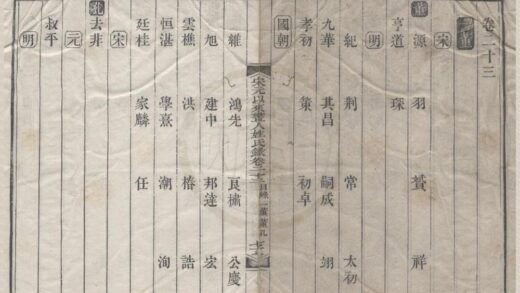 卷二十三
宋
董 源 羽 贇 祥
亨道 琛
明
紀 荊 常 太初
九華 其昌 嗣成 翊
孝初 策 初卓
國朝
宋元以來畫人姓氏錄卷二十三目錄 一 董 孔
維 鴻先 良橚 公慶
旭 建中 邦達 宏
雲樵 洪 椿 誥
恒湛 學熹 潮 洵
廷桂 家麟 任
宋
孔 去非
元
叔平
明